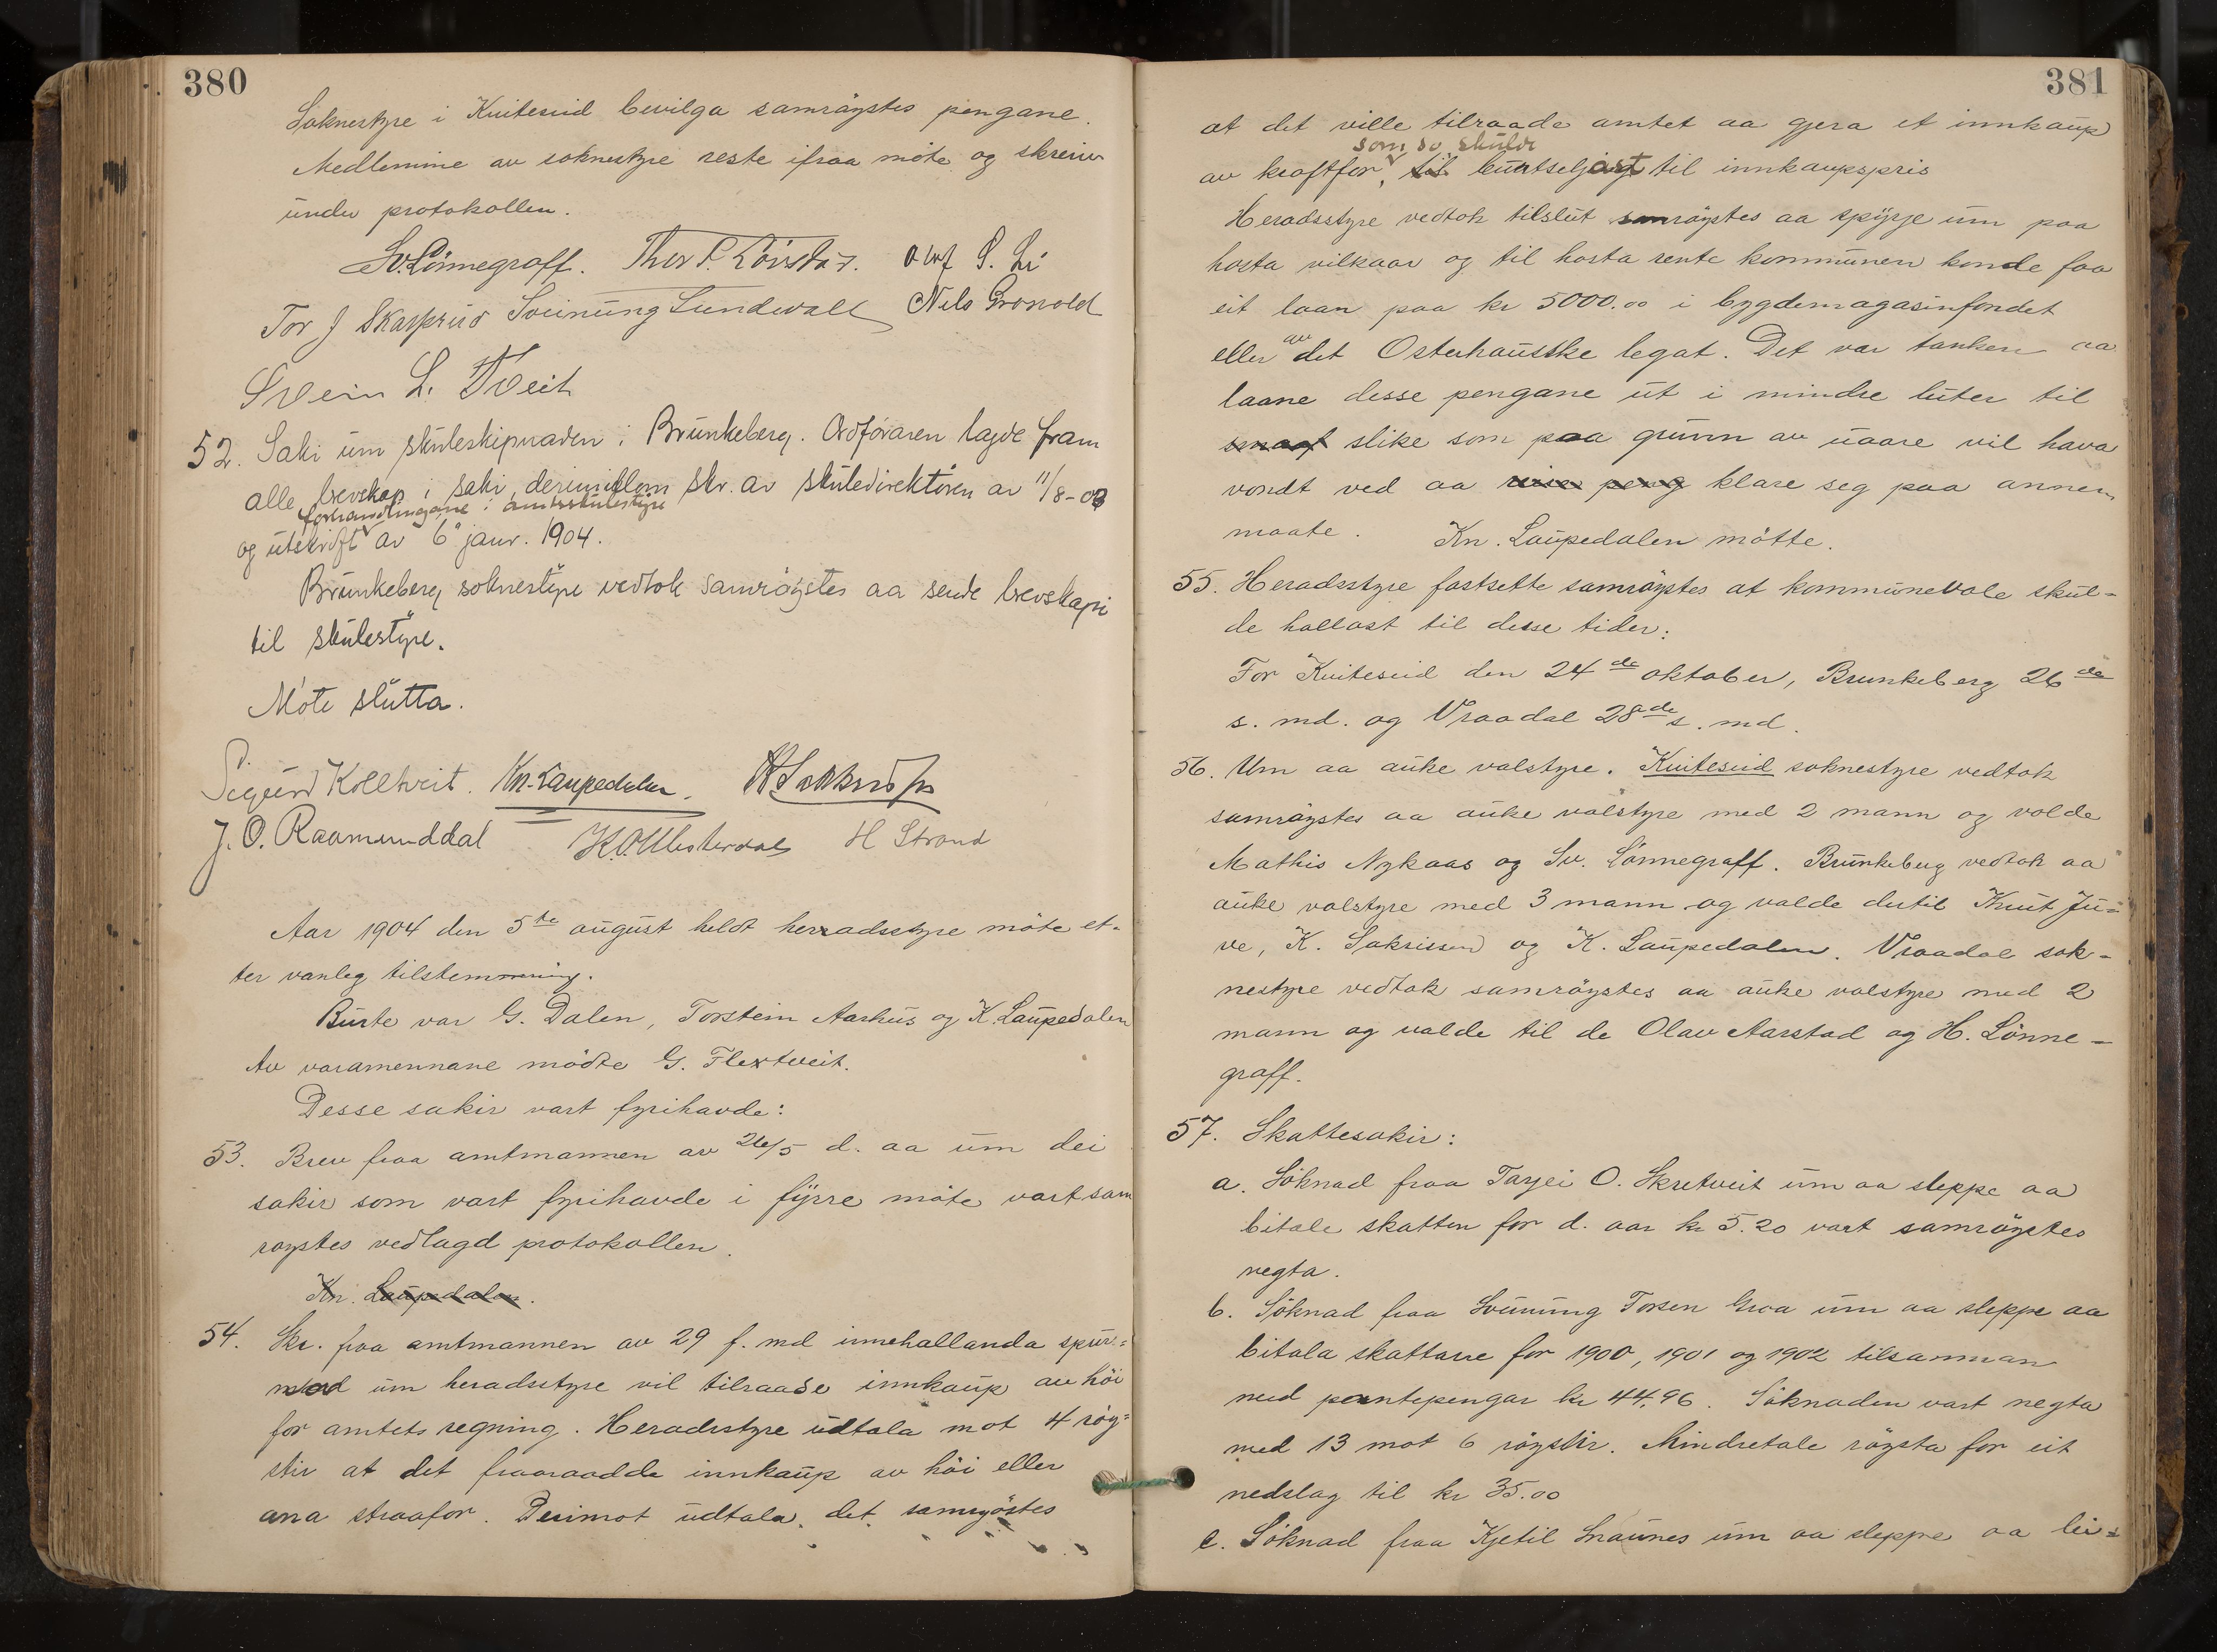 380
Soknestyre i Kvitesεid bevilga samrøystes pengane.
Medlemine av soknestyre reste ifraa møte og skreiv
under protokollen.
Sv. Lønnegraff. Thor P. Olav S. Li
Tor J Skasprud Sveinung Sundvall Nils Grovold
Svein L. Tveit
52. Saki um skuleskipnaden i Brunkeberg. Ordføraren lagde fram
alle brevskap i saki, derimillom skr. av skuledirektøren av 11/8-03
forhandlingane i amtsskulestyre
og utskrift av 6 janr. 1904.
Brunkeberg soknestyre vedtok samrøystes aa sende brevskapi
til skulestyre.
Møte slutta.
Sigurd Kolltveit. Kn. Laupedalen.
J. O. Raamunddal K. O. Vesterdal H Strand
Aar 1904 den 5te august heldt herradsstyre møte et-
ter vanleg tilstemning.
Burte var G. Dalen, Torstein Aarhus og K. Laupedalen
Av varamennane mødte G. Flextveit.
Desse sakir vart fyrihavde:
53. Brev fraa amtmannen av 26/5 d. aa um dei
sakir som vart fyrihavde i fyrre møte vart sam
røystes vedlagd protokollen.
Kn. Laupedalen.
54. Skr. fraa amtmannen av 29 f. md innehallanda spurs=
maal um heradsstyre vil tilraade innkaup av høi
for amtets regning. Heradsstyre udtala mot 4 røy=
stir at det fraaraadde innkaup av høi eller
ana straafor. Derimot udtala det samrøystes
381
at det ville tilraade amtet aa gjera et innkaup
som so skulde
av kraftfor, til burtseljast til innkaupspris
Heradsstyre vedtok tilslut samrøystes aa spyrje um paa
kosta vilkaar og til kosta rente kommunen kunde faa
eit laan paa kr 5000.00 i bygdemagasinfondet
eller av det Osterhausske legat. Det var tanken aa
laane desse pengane ut i mindre luter til
smaaf slike som paa grunn av uaare vil hava
vondt ved aa peng klare seg paa annen
maate. Kn. Laupedalen møtte.
55. Heradsstyre fastsette samrøystes at kommunevale skul-
de hallast til desse tider:
For Kviteseid den 24de oktober, Brunkeberg 26de
s. md. og Vraadal 28de s. md.
56. Um aa auke valstyre. Kviteseid soknestyre vedtok
samrøystes aa auke valstyre med 2 mann og valde
Mathis Nykaas og Sv. Lønnegraff. Brunkeberg vedtok aa
auke valstyre med 3 mann og valde dertil Knut Ju=
ve, K. Sakrissen og K. Laupedalen. Vraadal sok-
nestyre vedtok samrøystes aa auke valstyre med 2
mann og valde til de Olav Aarstad og H. Lønne-
graff.
57. Skattesakir:
a. Søknad fraa Tarjei O. Skretveit um aa sleppe aa
bitale skatten for d. aar kr 5.20 vart samrøystes
negta.
b. Søknad fraa Sveinung Torsen Groa um aa sleppe aa
bitala skattane for 1900, 1901 og 1902 tilsamman
med pantepengar kr 44,96. Søknaden vart negta
med 13 mot 6 røystir. Mindretale røysta for eit
nedslag til kr 35.00
c. Søknad fraa Kjetil Snaunes um aa sleppe aa bi=